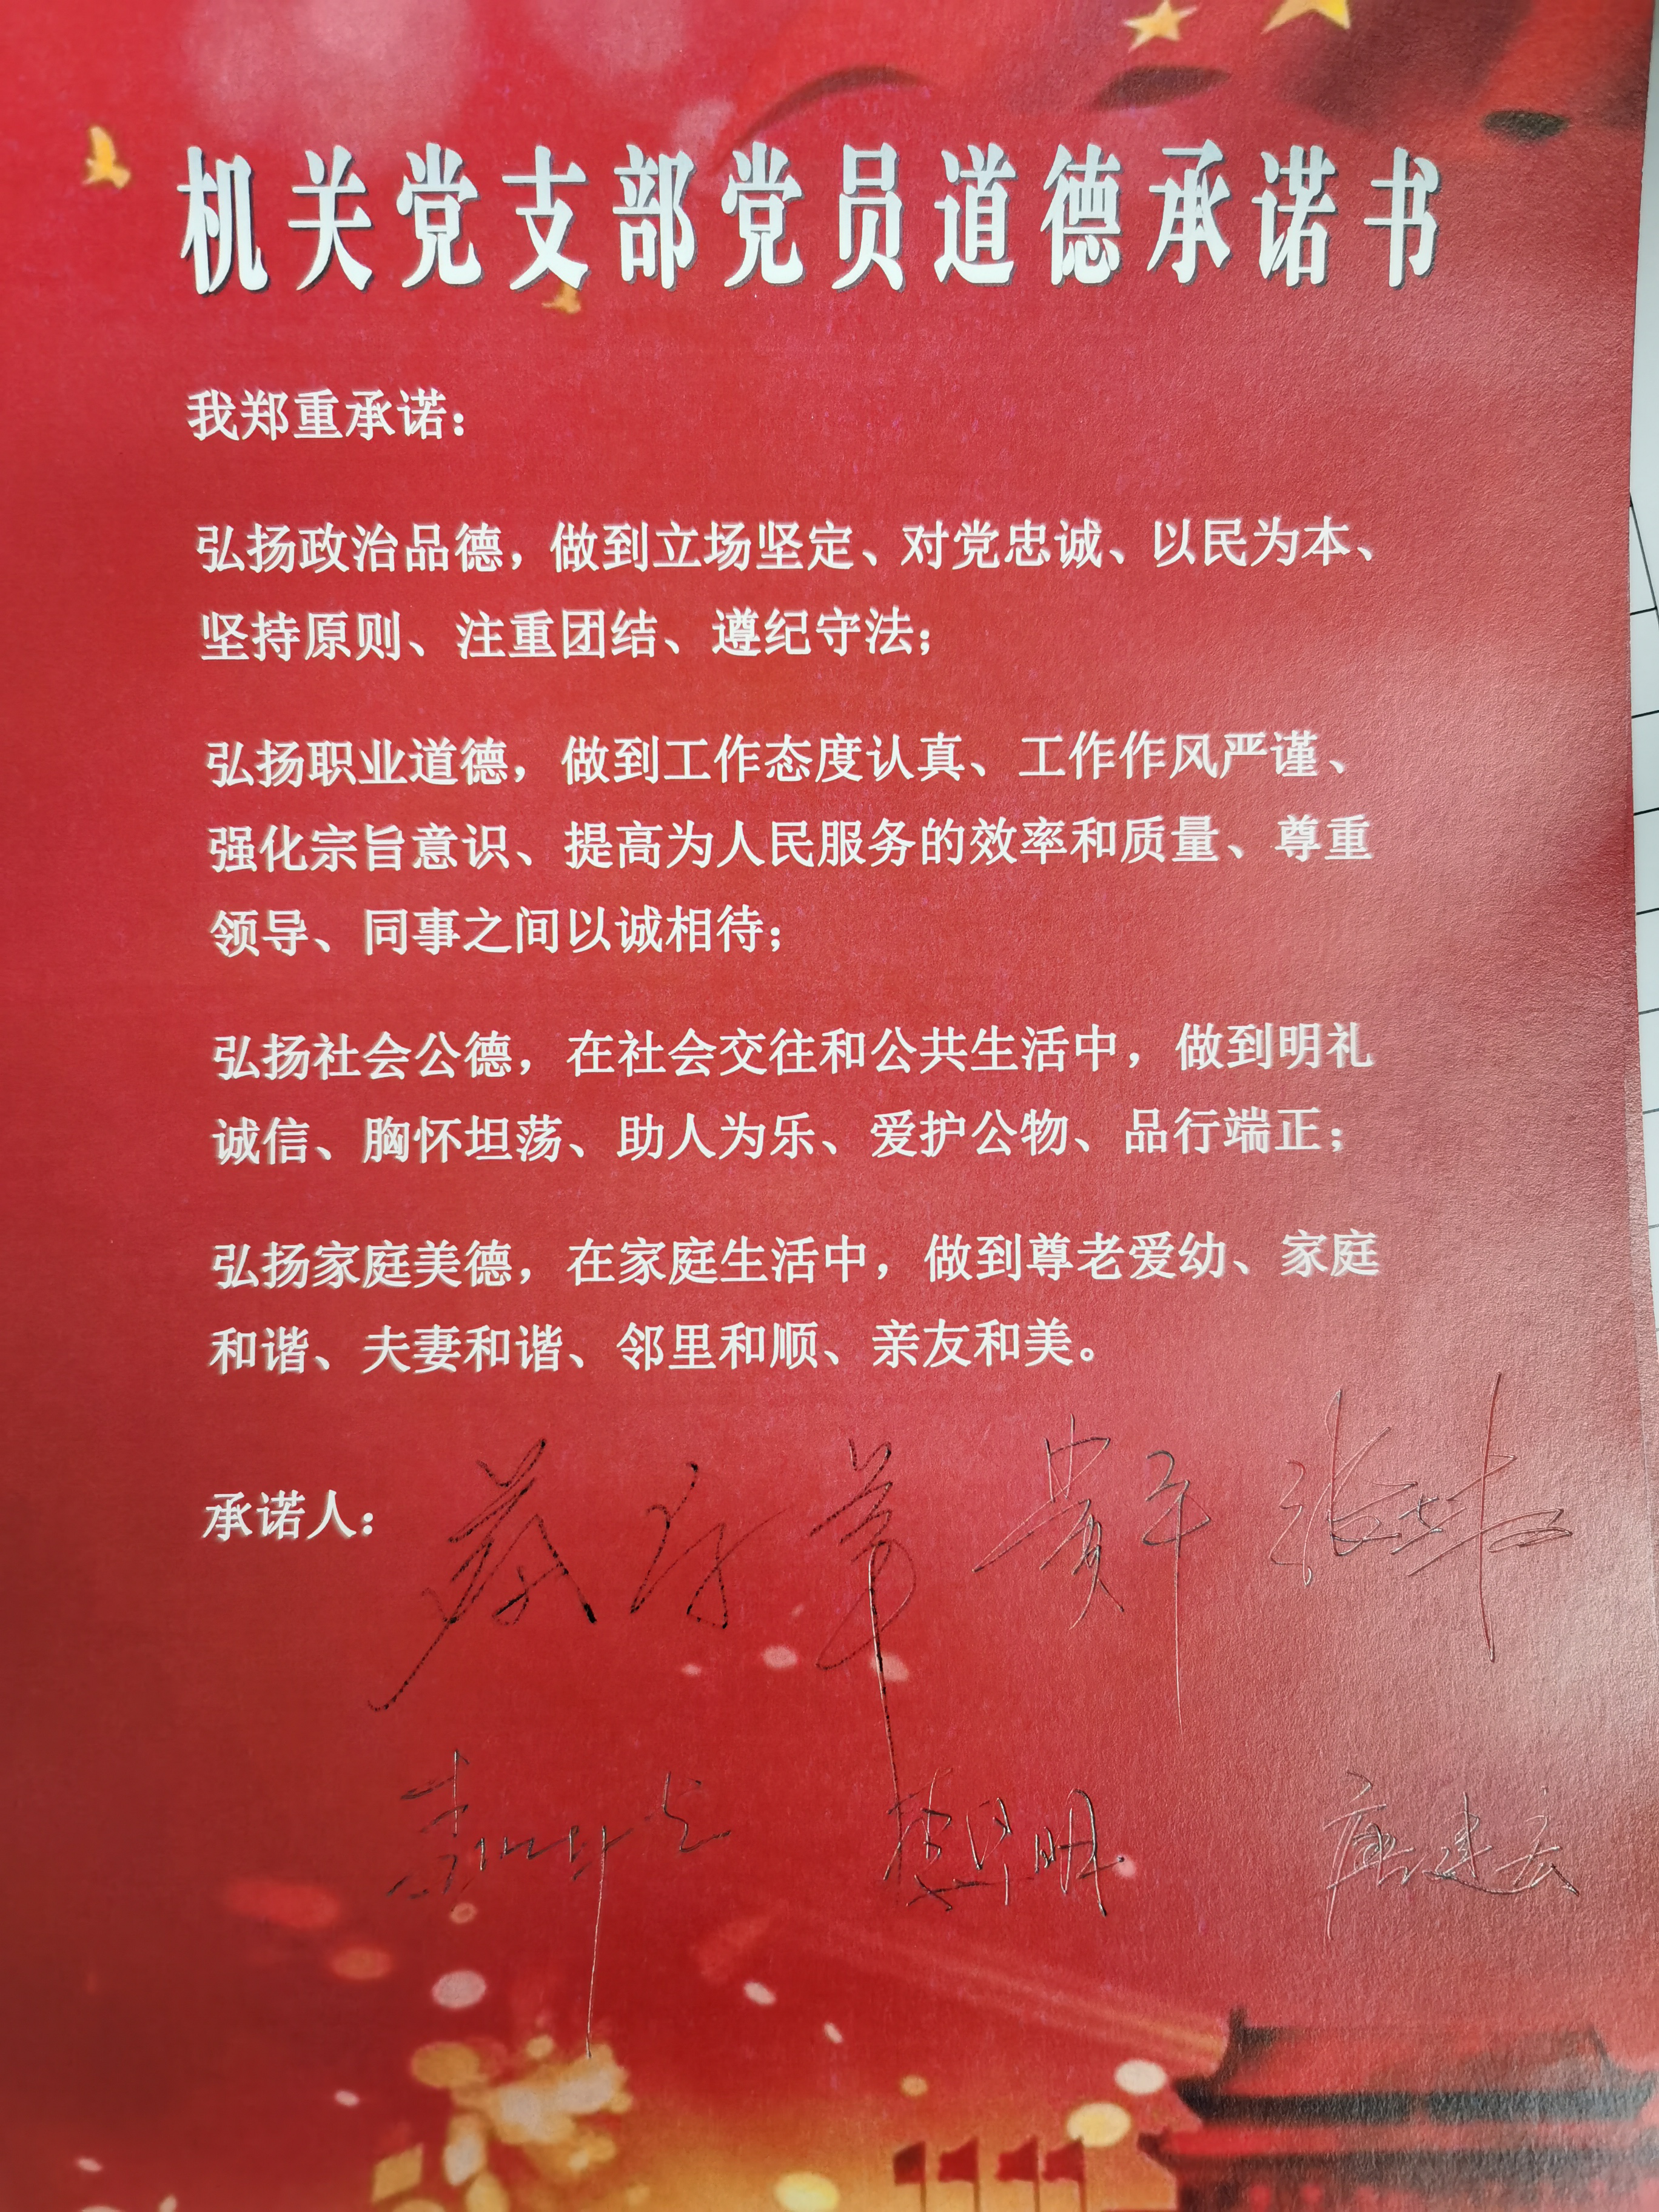 机关党支部党员道德承诺书
我郑重承诺：
弘扬政治品德，做到立场坚定、对党忠诚、以民为本、
坚持原则、注重团结、遵纪守法；
弘扬职业道德，做到工作态度认真、工作作风严谨、
强化宗旨意识、提高为人民服务的效率和质量、尊重
领导、同事之间以诚相待；
弘扬社会公德，在社会交往和公共生活中，做到明礼
诚信、胸怀坦荡、助人为乐、爱护公物、品行端正；
弘扬家庭美德，在家庭生活中，做到尊老爱幼、家庭
和谐、夫妻和谐、邻里和顺、亲友和美。
承诺人：